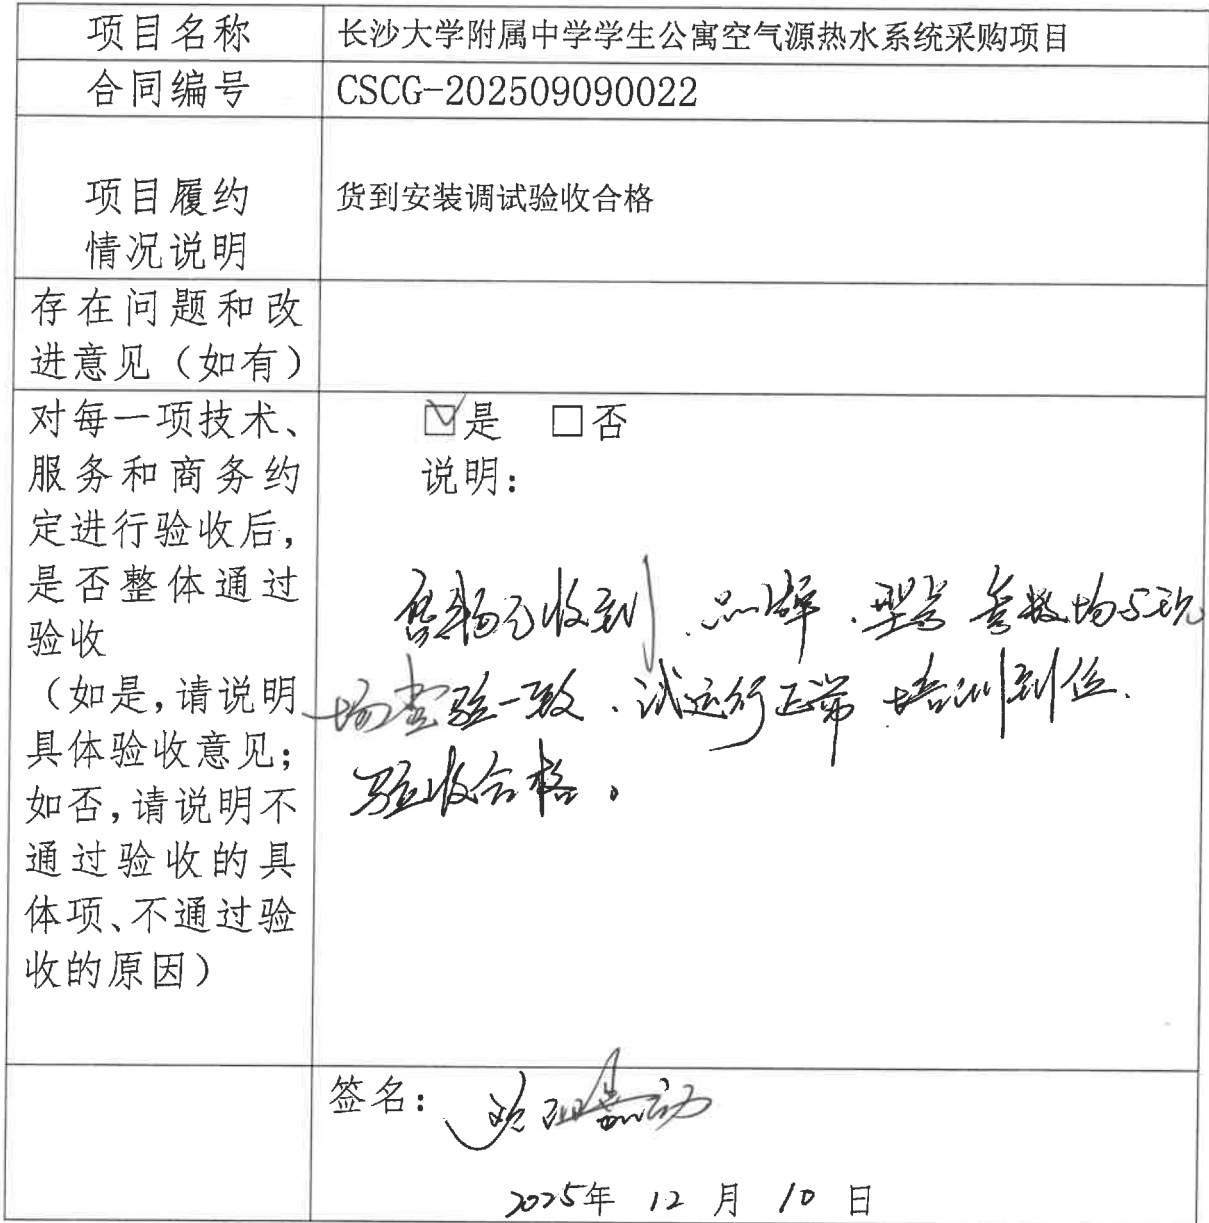 项目名称 长沙大学附属中学学生公寓空气源热水系统采购项目
合同编号 CSCG-202509090022
项目履约
情况说明
货到安装调试验收合格
存在问题和改
进意见（如有）
对每一项技术、
服务和商务约
定进行验收后，
是否整体通过
验收
（如是，请说明
具体验收意见；
如否，请说明不
通过验收的具
体项、不通过验
收的原因）
☑是 □否
说明：
货物已收到、品牌、型号参数均与现
场查验一致、试运行正常 培训到位.
验收合格。
签名：
2025年 12 月 10 日